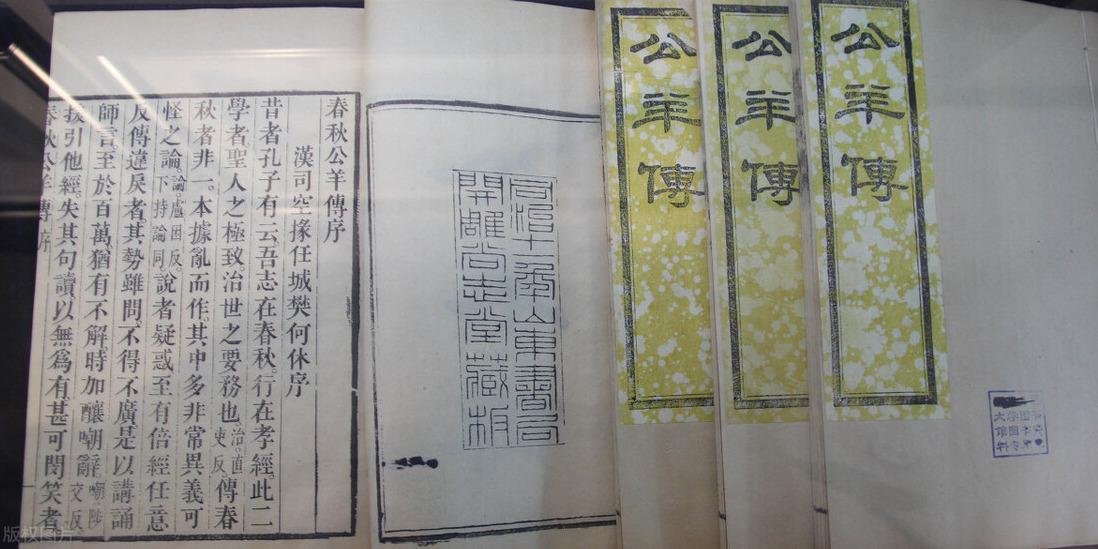 公羊傳
公羊傳
公羊傳
同治十一年山東書局
開雕尚志堂藏板
春秋公羊傳序
漢司空掾任城樊何休序
昔者孔子有云。吾志在春秋。行在孝經。此二
學者。聖人之極致。治世之要務也。治。直吏反。傳春
秋者非一。本據亂而作。其中多非常異義可
怪之論。論。盧困反。下持論同。說者疑惑至有倍經任意
反傳違戾者。其勢雖問。不得不廣。是以講誦
師言。至於百萬。猶有不解。時加釀嘲辭。嘲。陟交反
援引他經。失其句讀。以無爲有。甚可閔笑者
春秋公羊傳 序
版权图片